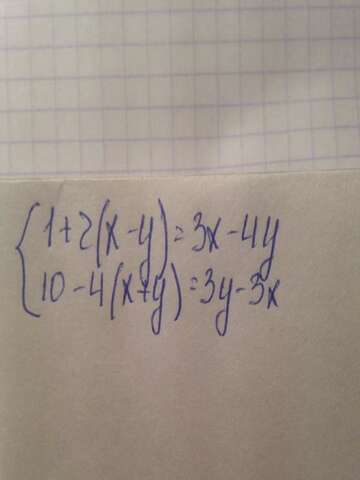 { 1+2(x-y)=3x-4y
10-4(x+y)=3y-3x